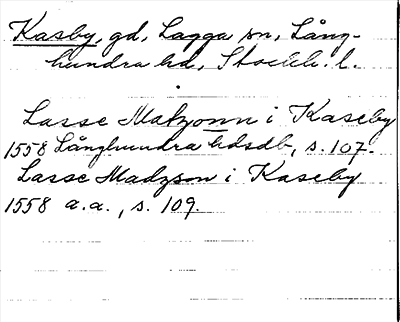 Kasby, gd, Lagga sn, Lång-
hundra hd, Stockh. l.
Lasse Matzonn i Kaseby
1558 Långhundra hdsdb, s. 107.
Lasse Madzson i Kaseby
1558 a.a., s. 109.